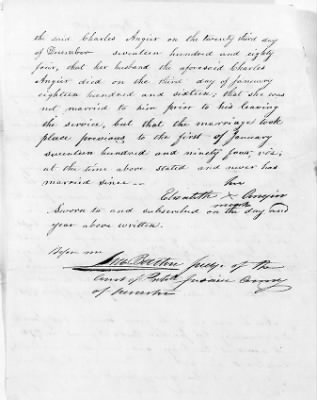 the said Charles Angier on the twenty third day
of December seventeen hundred and eighty
four, that her husband the aforesaid Charles
Angier died on the third day of January
eighteen hundred and sixteen; that she was
not married to him prior to his leaving
the service, but that the marriage took
place previous to the first of January
seventeen hundred and ninety four, viz:
at the time above stated and never has
married since —
her
Elizabeth X Angier
mark
Sworn to and subscribed on the day and
year above written.
Before me
Judge of the
Court of
of